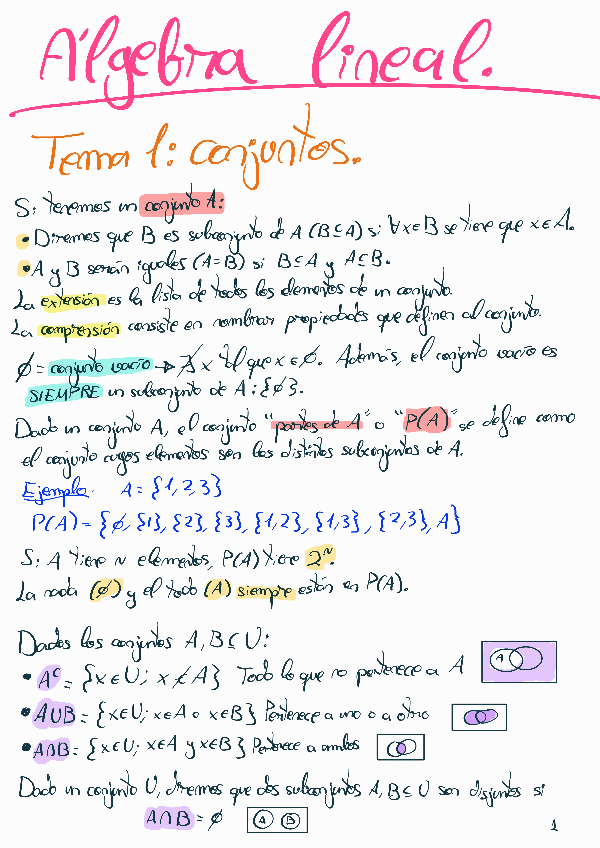 Álgebra lineal.
Tema 1: conjuntos.
Si tenemos un conjunto A:
• Diremos que B es subconjunto de A (B⊆A) si ∀x∈B se tiene que x∈A.
• A y B serán iguales (A=B) si B⊆A y A⊆B.
La extensión es la lista de todos los elementos de un conjunto.
La comprensión consiste en nombrar propiedades que definen al conjunto.
∅ = conjunto vacío → ∄ x tal que x∈∅. Además, el conjunto vacío es
SIEMPRE un subconjunto de A: {∅}.
Dado un conjunto A, el conjunto "partes de A" o "P(A)" se define como
el conjunto cuyos elementos son los distintos subconjuntos de A.
Ejemplo. A = {1,2,3}
P(A) = {∅, {1}, {2}, {3}, {1,2}, {1,3}, {2,3}, A}
Si A tiene n elementos, P(A) tiene 2ⁿ.
La nada (∅) y el todo (A) siempre están en P(A).
Dados los conjuntos A, B ⊂ U:
• Aᶜ = {x∈U; x∉A} Todo lo que no pertenece a A
A
• A∪B = {x∈U; x∈A o x∈B} Pertenece a uno o a otro
• A∩B = {x∈U; x∈A y x∈B} Pertenece a ambos
Dado un conjunto U, diremos que dos subconjuntos A, B⊆U son disjuntos si
A∩B = ∅ A B
1